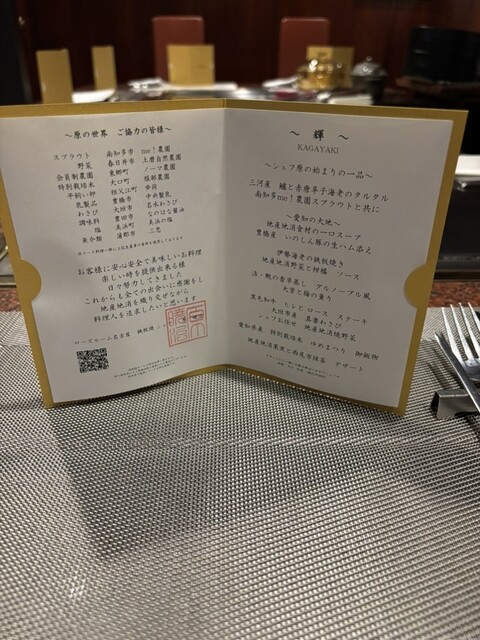 ～原の世界 ご協力の皆様～
スプラウト 南知多市 me!農園
野菜 春日井市 土磨自然農園
会員制農園 東郷町 ノーフ農園
特別栽培米 大口町 服部農園
平飼い卵 祖父江町 歩荷
乳製品 豊橋市 中央製乳
わさび 大垣市 名水わさび
調味料 豊田市 なのはな醤油
塩 美浜町 美浜の塩
魚介類 蒲郡市 三忠
お客様に安心安全で美味しいお料理
楽しい時を提供出来る様
日々努力してきました
これからも全ての出会いに感謝をし
地産地消を織りませながら
料理人を追求したいと思います
ローズルーム名古屋 鉄板焼
～ 輝 ～
KAGAYAKI
～シェフ原の始まりの一品～
三河産 鱸と赤唐辛子海老のタルタル
南知多me!農園スプラウトと共に
～愛知の大地～
地産地消食材の一口スープ
豊橋産 いのしん豚の生ハム添え
伊勢海老の鉄板焼き
地産地消野菜と柑橘 ソース
活・鮑の香草蒸し グルノーブル風
大葉と梅の薫り
黒毛和牛 ヒレとロース ステーキ
大垣市産 真妻わさび
シェフお任せ 地産地消焼野菜
愛知県産 特別栽培米 ゆめまつり 御飯物
地産地消果実と西尾市抹茶 デザート